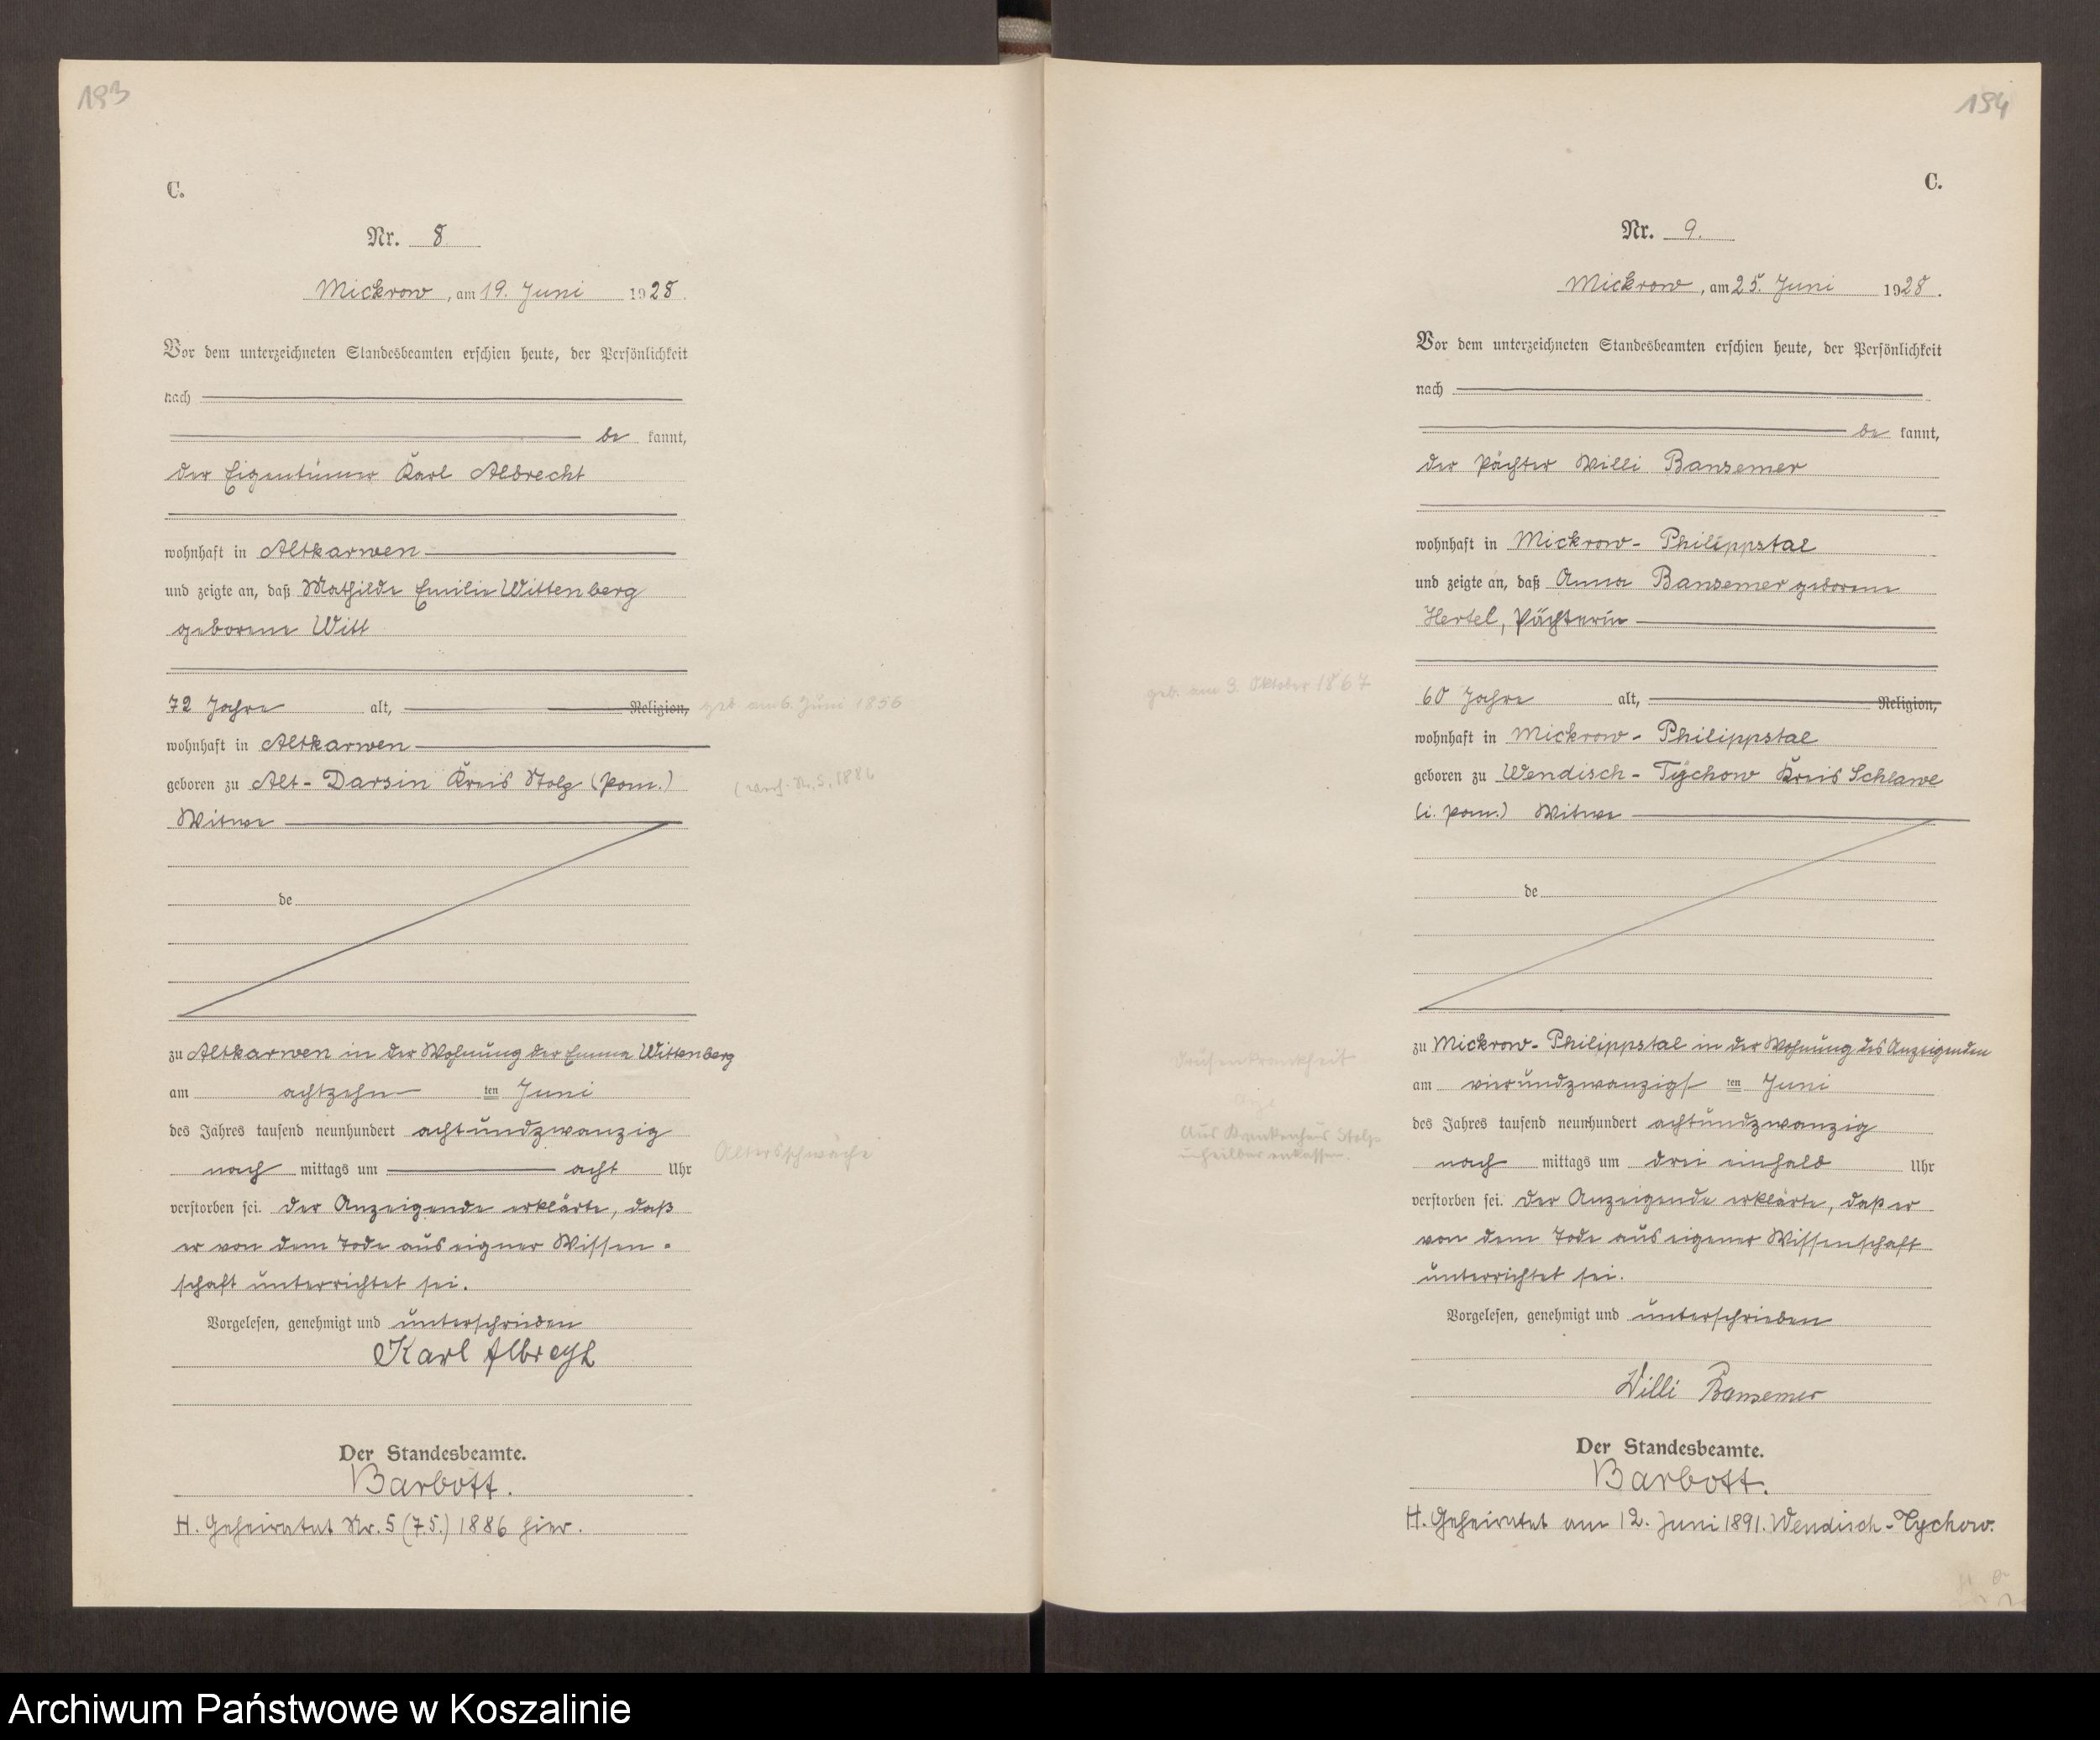 193
C.
Nr. 8
Mickrow, am 19. Juni 1928.
Vor dem unterzeichneten Standesbeamten erschien heute, der Persönlichkeit
nach
be kannt,
der Eigentümer Karl Albrecht
wohnhaft in Altkarwen
und zeigte an, daß Mathilde Emilie Wittenberg
geborene Witt
72 Jahre alt, Religion, geb. am 6. Juni 1856
wohnhaft in Altkarwen
geboren zu Alt-Darsin Kreis Stolp (Pom.)
(verh. Nr. 5, 1886
Witwe
de
zu Altkarwen in der Wohnung der Emma Wittenberg
am achtzehn ten Juni
des Jahres tausend neunhundert achtundzwanzig
Altersschwäche
nach mittags um acht Uhr
verstorben sei. Der Anzeigende erklärte, daß
er von dem Tode aus eigner Wissen-
schaft unterrichtet sei.
Vorgelesen, genehmigt und unterschrieben
Karl Albrecht
Der Standesbeamte.
Barbott.
H. Geheiratet Nr. 5 (7.5.) 1886 hier.
194
C.
Nr. 9.
Mickrow, am 25. Juni 1928.
Vor dem unterzeichneten Standesbeamten erschien heute, der Persönlichkeit
nach
be kannt,
der Pächter Willi Bansemer
wohnhaft in Mickrow-Philippstal
und zeigte an, daß Anna Bansemer geborene
Hertel, Pächterin
geb. am 3. Oktober 1867
60 Jahre alt, Religion,
wohnhaft in Mickrow-Philippstal
geboren zu Wendisch-Tychow Kreis Schlawe
(i. Pom.) Witwe
de
zu Mickrow-Philippstal in der Wohnung des Anzeigenden
Drüsenkrankheit
am vierundzwanzigs ten Juni
des Jahres tausend neunhundert achtundzwanzig
Aus Krankenhaus Stolp
unheilbar entlassen.
nach mittags um drei einhalb Uhr
verstorben sei. Der Anzeigende erklärte, daß er
von dem Tode aus eigener Wissenschaft
unterrichtet sei.
Vorgelesen, genehmigt und unterschrieben
Willi Bansemer
Der Standesbeamte.
Barbott.
H. Geheiratet am 12. Juni 1891. Wendisch-Tychow.
Archiwum Państwowe w Koszalinie